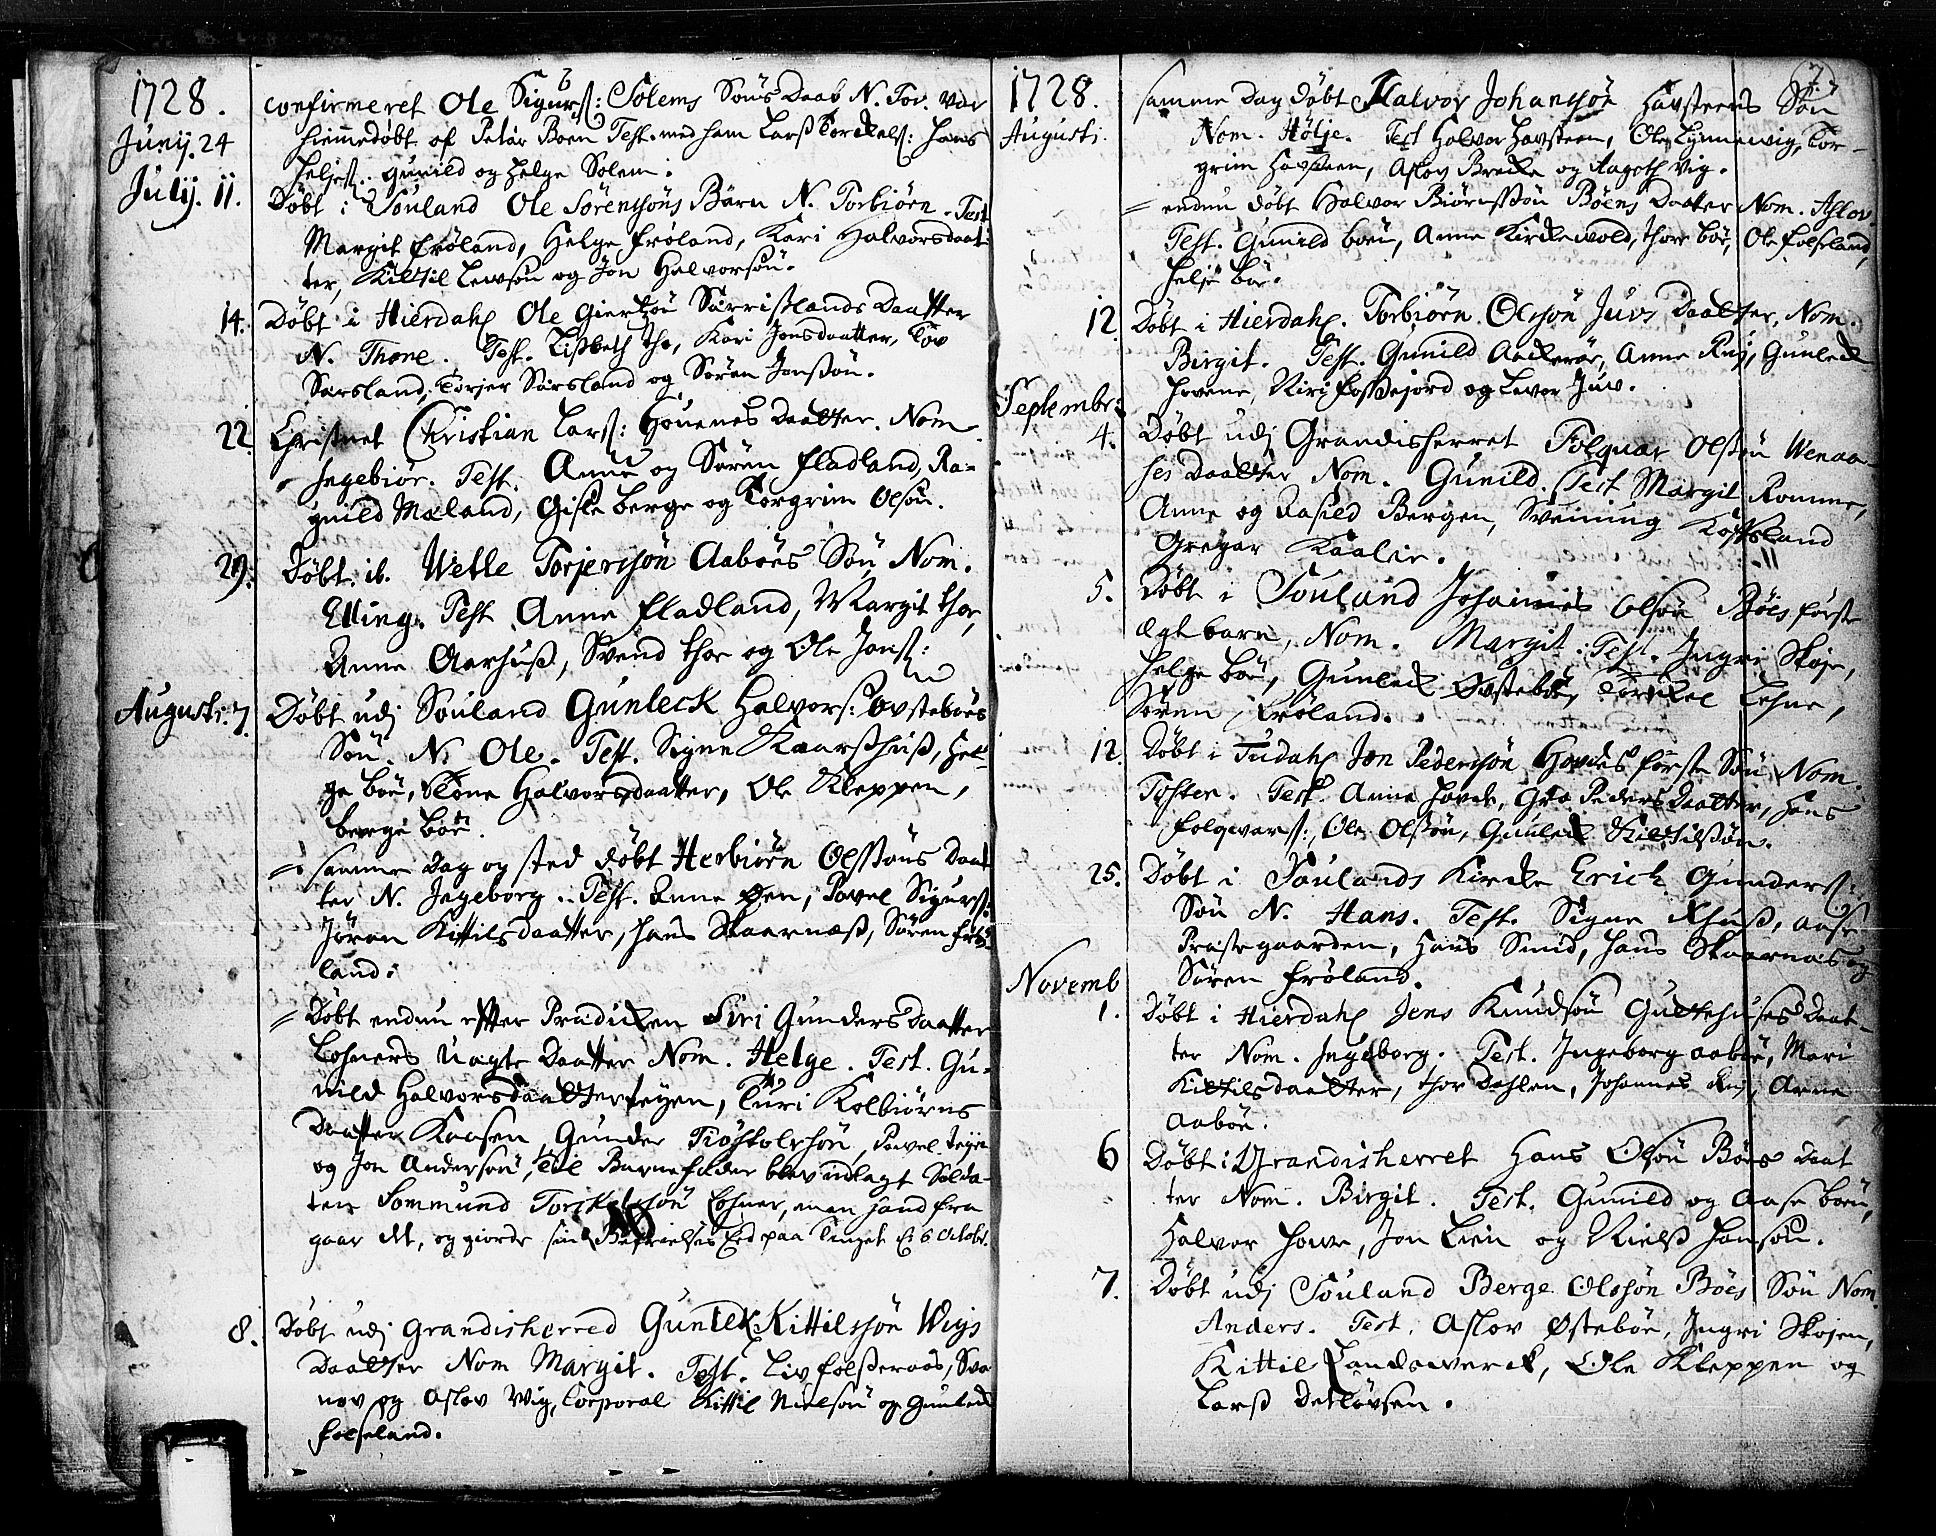 6
1728.
Junij. 24
confirmeret Ole Sigurs: Solems Søns Daab N. Tov. var
hiemmedøbt af Peder Boen Test. med ham Lars Torckels: Hans
Heljes:. Gunild og Helge Solem.
Julij. 11.
Døbt i Souland Ole Sörensöns Barn N. Torbiörn. Test
Margit Fröland, Helge Fröland, Kari Halvorsdaat-
ter, Kittil Levsøn og Jon Halvorsøn.
14.
Døbt i Hierdahl Ole Giertsön Sarrislands Daatter
N. Thone. Test. Lisbeth Tho, Kari Jonsdaatter, Tov
Sarsland, Torjer Sarsland og Sören Jonssön.
22.
Christnet Christian Lars: Houenes Daatter. Nom
Ingebiør. Test. Anne og Sören Fladland, Ra-
gnild Mæland, Gisle Berge og Torgrim Olsøn.
29.
Døbt. ib. Wetle Torjersön Aaböes Søn Nom.
Elling. Test Anne Fladland, Margit Thoe,
Anne Aarhus, Svend Thoe og Ole Jons:
Augusti. 7.
Døbt udj Souland Gunleck Halvors: Øvstebøes
Søn. N. Ole. Test. Signe Kaarshus, Hel-
ge Bøe, Tone Halvorsdaatter, Ole Kleppen,
Berge Bøe.
= samme Dag og sted døbt Herbiörn Olssøns Daat
ter N. Ingeborg. Test. Anne Øen, Povel Sigurs:
Jöran Kittilsdaatter, Hans Skaarnæs, Sören Frö
land.
= Døbt endnu efter Prædicken Siri Gundersdaatter
Lohners uægte Daatter Nom. Helge. Test. Gu-
nild Halvorsdaatter Teyen, Turi Kolbiörns
Daatter Kaasen, Gunder Tiöstolvsön, Povel Teyen
og Jon Andersøn, til Barnefader blev udlagt Solda-
ten Sommund Torckelssøn Lohner, men hand fra
gaar det, og giorde sin Befrielses Eed paa Tinget d. 6 Octobr.
8.
Døbt udj Grandisherred Gunlek Kittilssön Wigs
Daatter Nom Margit. Test. Liv Folseraas, Sva
nov og Aslov Wig, Corporal Kittil Nielsøn og Gunled
Folseland.
7
1728.
Augusti.
samme Dag døbt Halvor Johanssön Havsteens Søn
Nom. Hölje. Test Halvor Havsteen, Ole Lynnewig, Tor-
grim Havsteen, Aslov Brecke og Aagoth Vig.
= endnu døbt Halvor Biörnssøn Böens Daatter Nom. Aslov
Test. Gunild Boen, Anne Kirckewold, Thore Bøe, Ole Folseland,
Helje Bøe.
12
Døbt i Hierdahl. Torbiörn Olssön Juvs Daatter, Nom.
Birgit. Test. Gunild Aackeröe, Anne Rui, Gunleck
Hovene, Kiri Fossejord og Lever Juv.
Septembr:
4.
Døbt udj Grandisherret Folquar Olssøn Wenaa-
ses Daatter Nom. Gunild. Test Margit Romme,
Anne og Rasild Bergen, Svenning Kossland
Gregar Kaalie.
5.
Døbt i Souland Johannes Olsøn Böes förste
Ægte barn, Nom. Margit. Test. Ingri Skoje,
Helge Bøe, Gunlek Øvstebøe, Torckel Lohne,
Sören Fröland.
12.
Døbt i Tudahl Jon Pedersön Hovdes förste Søn Nom.
Tosten. Test. Anne Hovde, Gro Peders Daatter, Hans
Folqvars:, Ole Olssøn, Gunlek Kittilssøn.
25.
Døbt i Soulands Kircke Erick Gunders:
Søn N. Hans. Test. Signe Rhus, Aase
Præstegaarden, Hans Smid, Hans Skaarnæs og
Sören Fröland.
Novemb
1.
Døbt i Hierdahl Jens Knudsøn Guttehuses Daat-
ter Nom. Ingeborg. Test. Ingeborg Aabøe, Mari
Kittilsdaatter, Thor Dahlen, Johannes Rui, Arne
Aabøe.
6
Døbt i Grandisherret Hans Olsøn Böes Daat
ter Nom. Birgit. Test. Gunild og Aase Bøen,
Halvor Hovve, Jon Lien og Niels Hansøn.
7.
Døbt udj Souland Berge Olssön Böes Søn Nom.
Anders. Test. Aslov Østebøe, Ingri Skojen,
Kittil Landsverck, Ole Kleppen og
Lars Detlövsen.